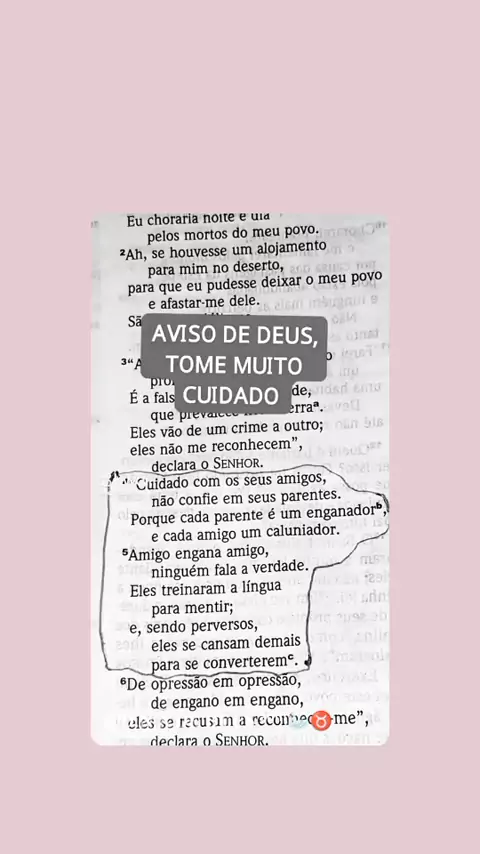 Eu choraria noite e dia
pelos mortos do meu povo.
²Ah, se houvesse um alojamento
para mim no deserto,
para que eu pudesse deixar o meu povo
e afastar-me dele.
Sã
AVISO DE DEUS,
TOME MUITO
CUIDADO
³“A
É a fals de,
que prevalece erraª.
Eles vão de um crime a outro;
eles não me reconhecem”,
declara o SENHOR.
Cuidado com os seus amigos,
não confie em seus parentes.
Porque cada parente é um enganadorᵇ,
e cada amigo um caluniador.
⁵Amigo engana amigo,
ninguém fala a verdade.
Eles treinaram a língua
para mentir;
e, sendo perversos,
eles se cansam demais
para se converteremᶜ.
⁶De opressão em opressão,
de engano em engano,
eles se recusam a reconhecer-me”,
declara o SENHOR.